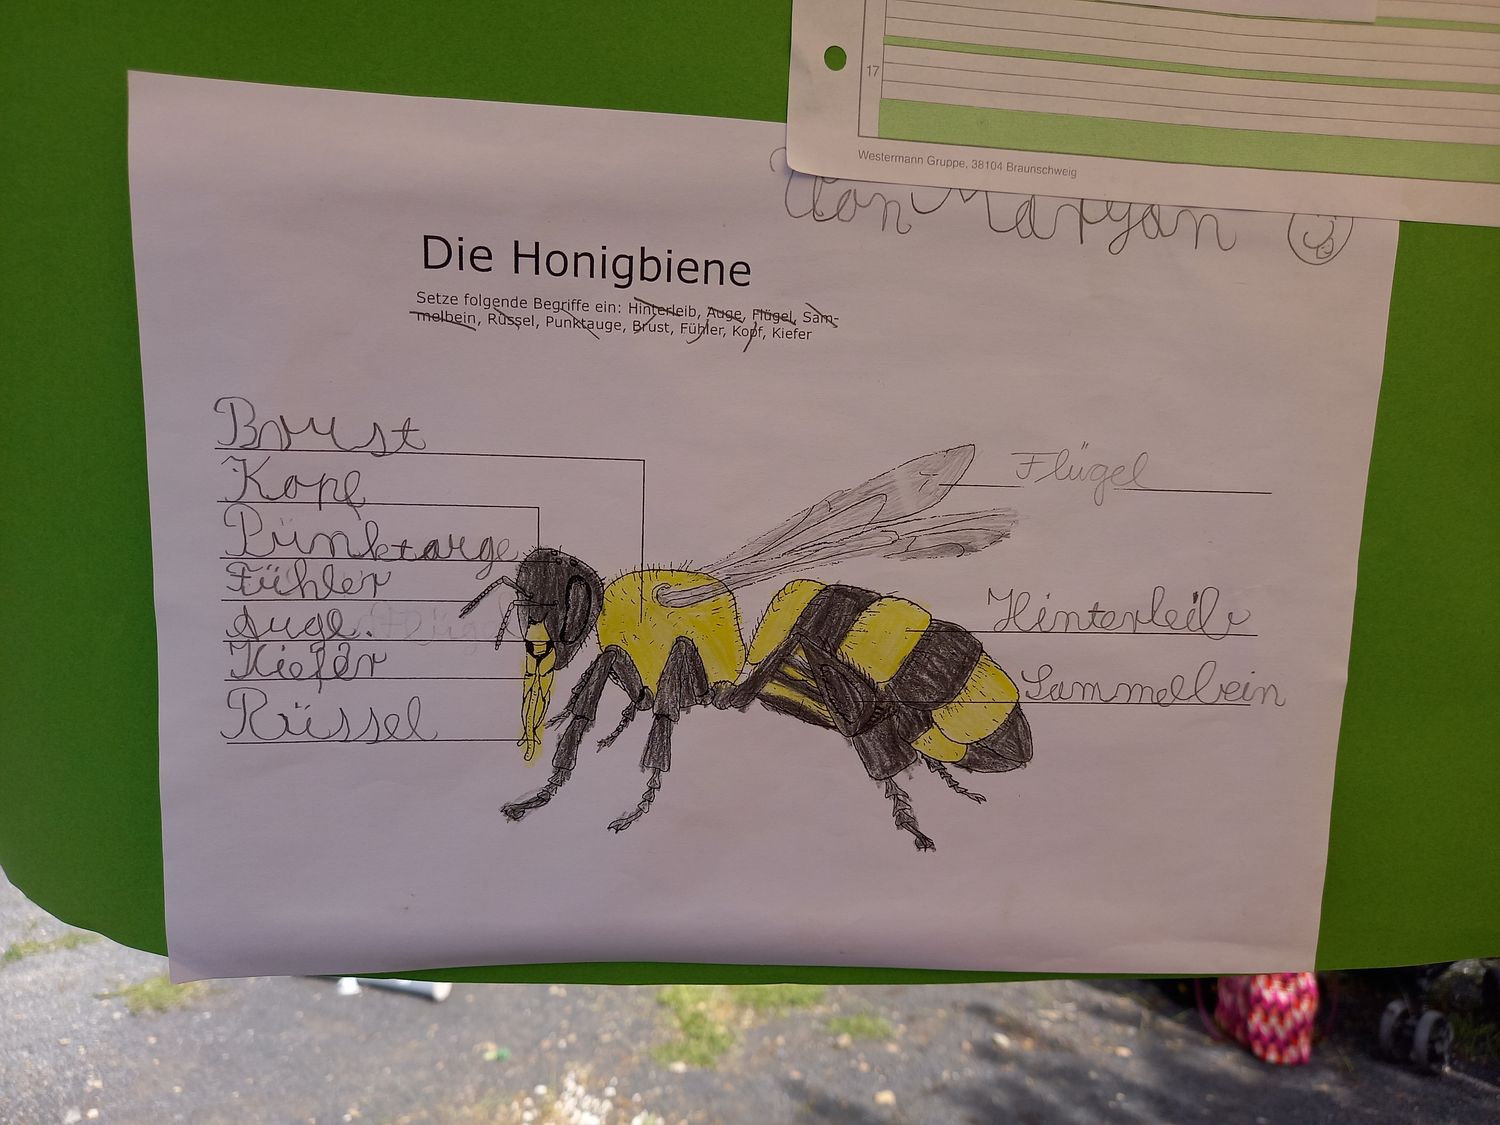 17
Westermann Gruppe, 38104 Braunschweig
Von Maryan
Die Honigbiene
Setze folgende Begriffe ein: Hinterleib, Auge, Flügel, Sam-
melbein, Rüssel, Punktauge, Brust, Fühler, Kopf, Kiefer
Brust
Kopf
Pünktauge
Fühler
Auge. Flügel
Kiefer
Rüssel
Flügel
Hinterleib
Sammelbein